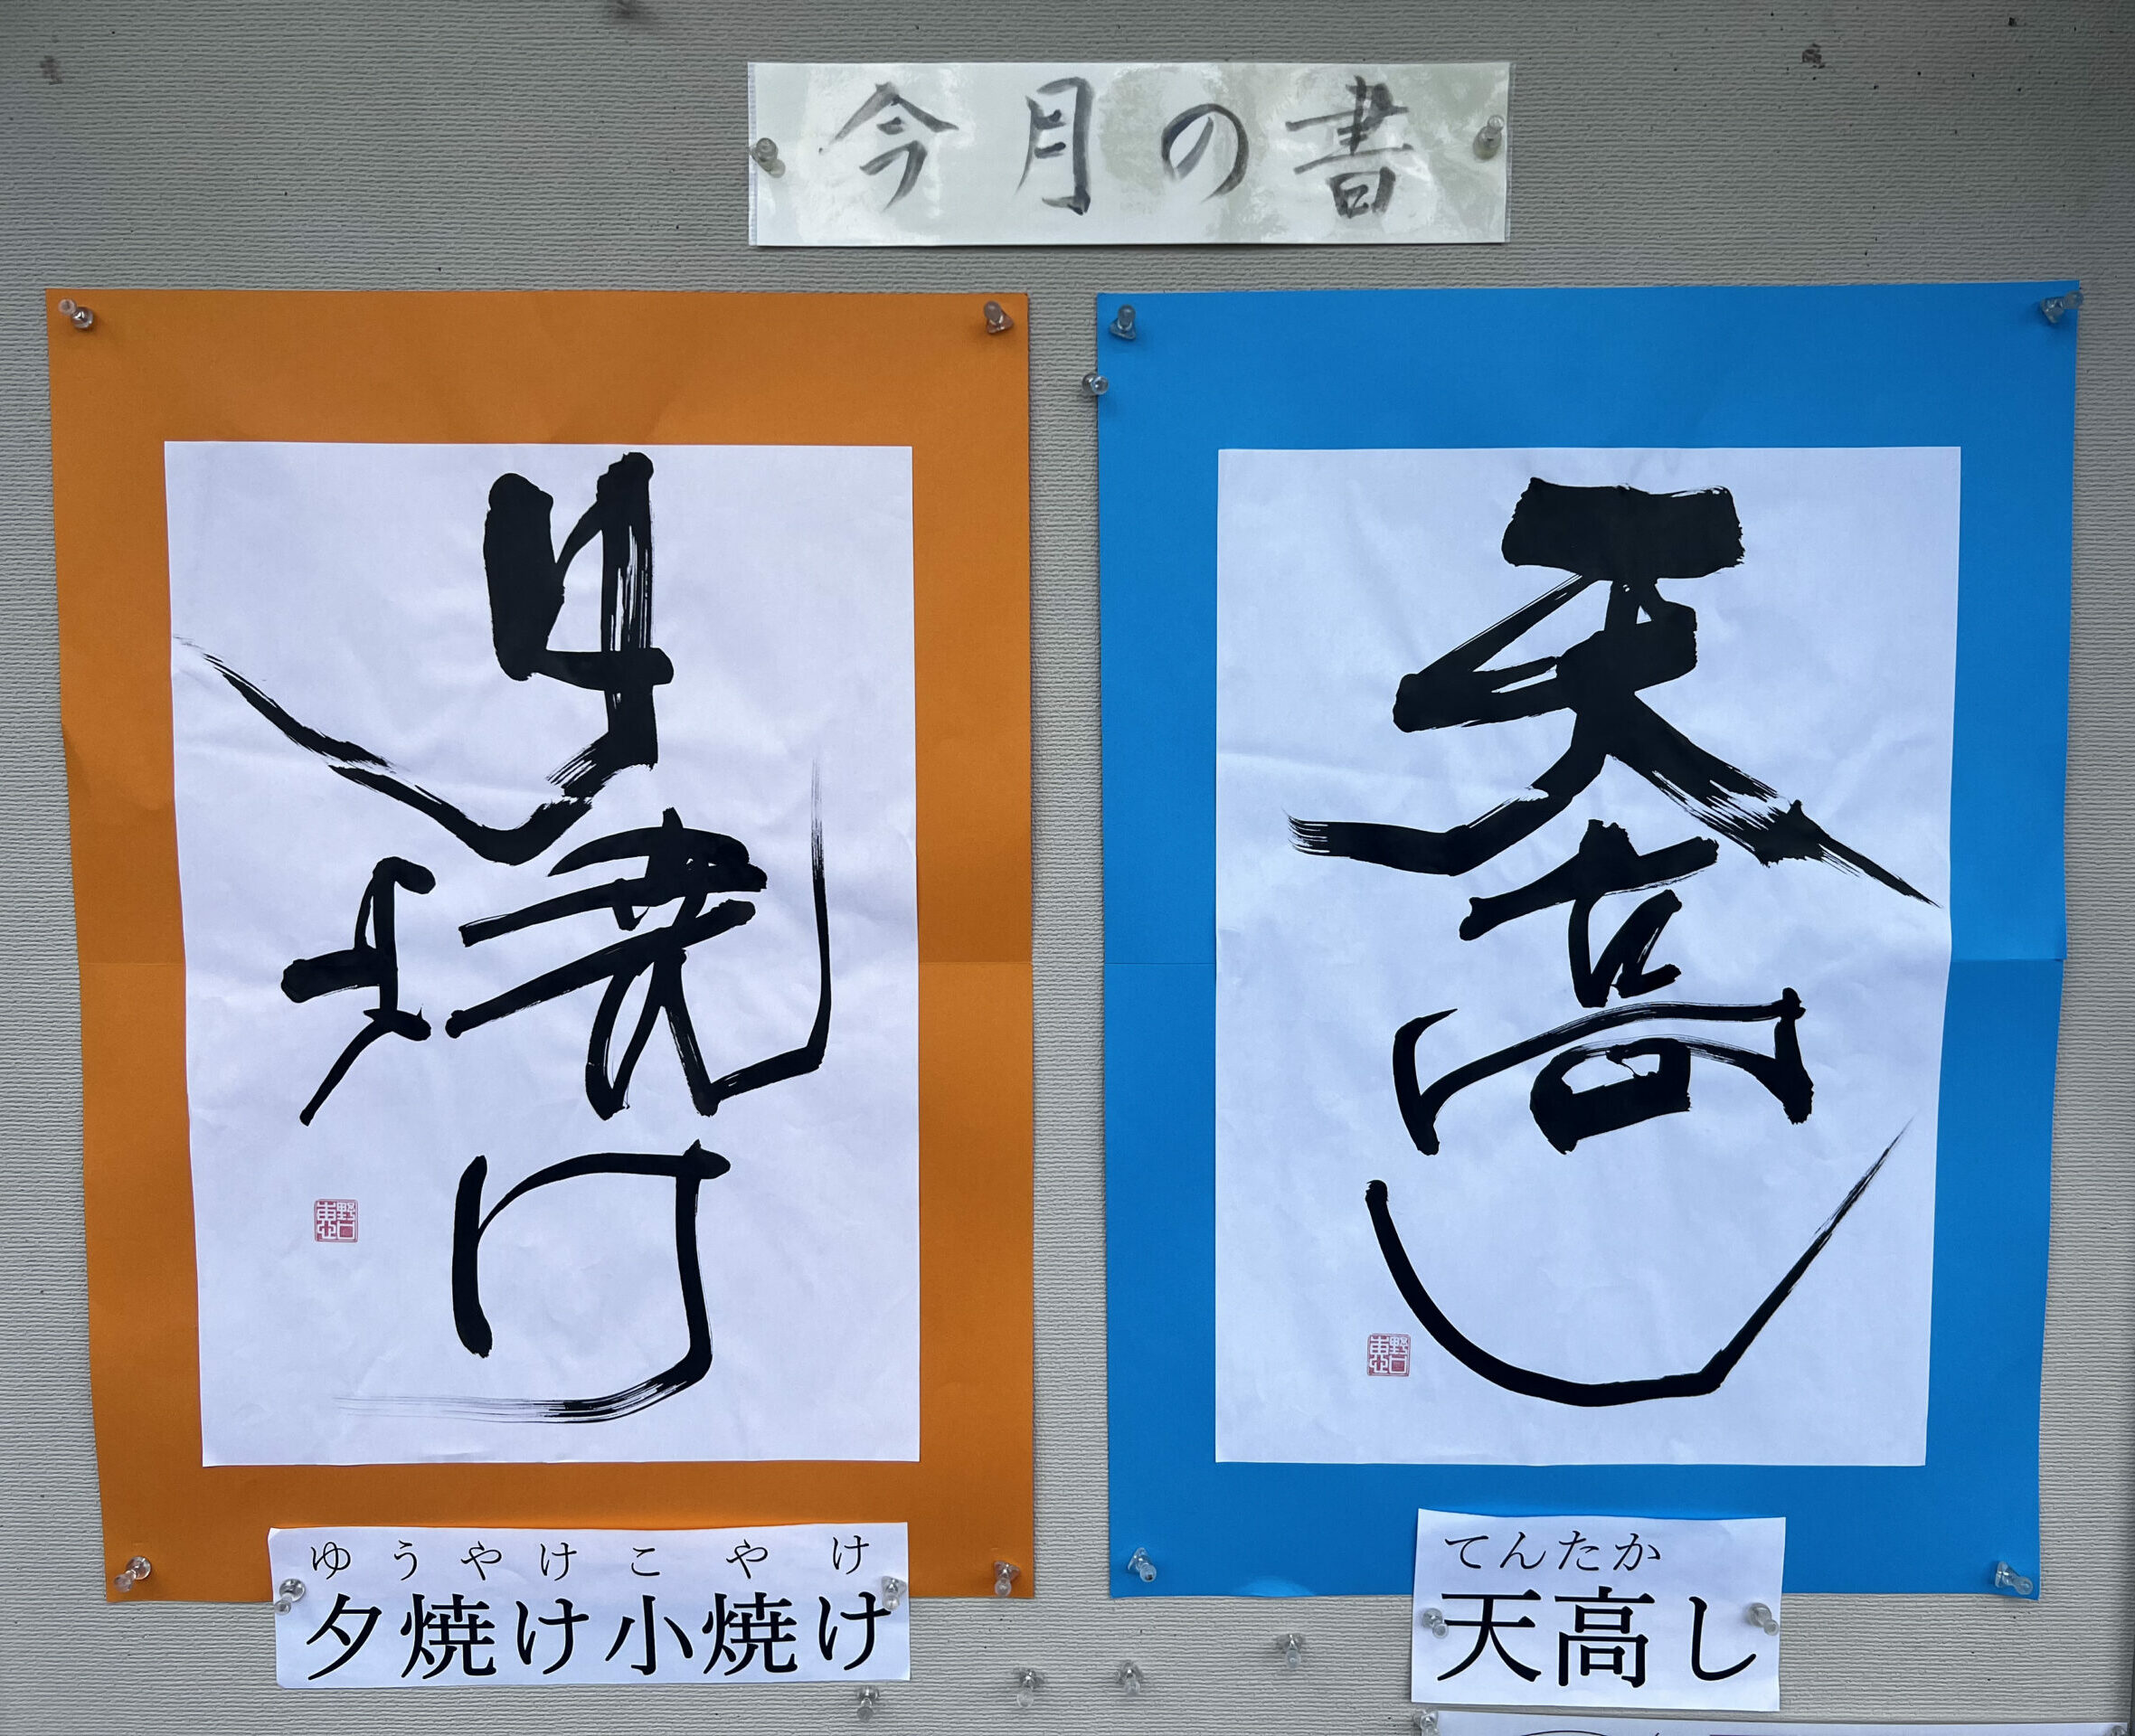 今月の書
夕焼け
ゆうやけこやけ
夕焼け小焼け
天高し
てんたか
天高し